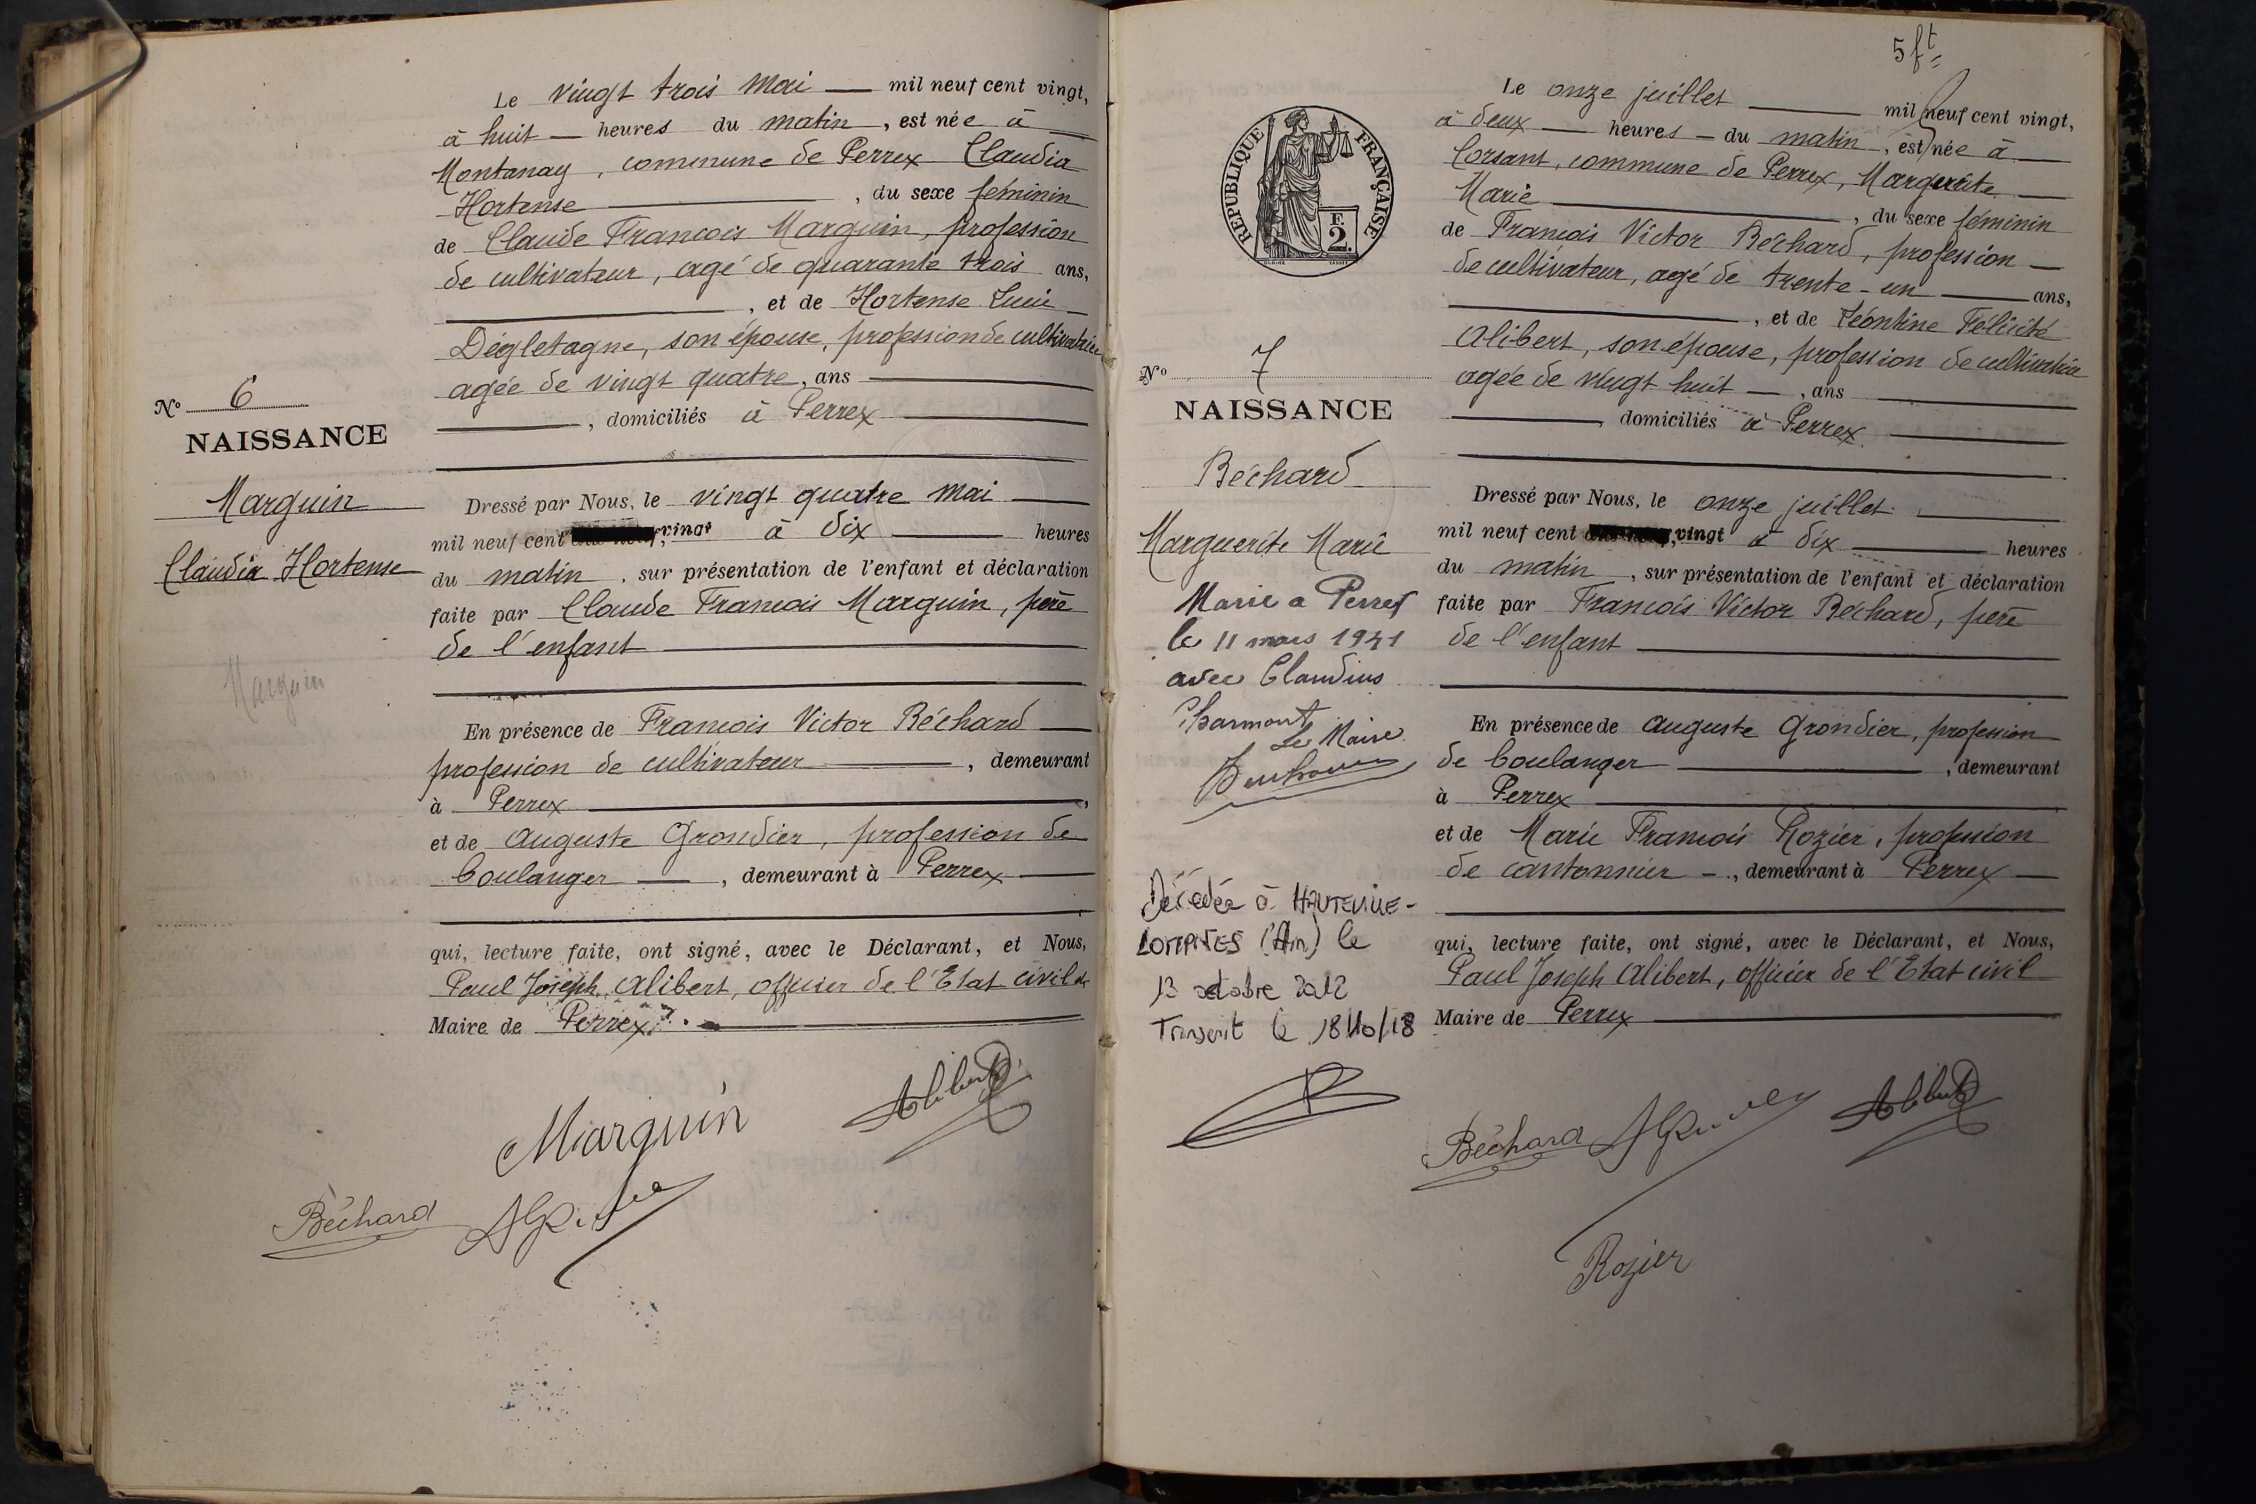 Le vingt trois Mai — mil neuf cent vingt,
à huit — heures du matin, est née à
Montanay, commune de Perrex Claudia
Hortense, du sexe féminin
de Claude François Marguin, profession
de cultivateur, agé de quarante trois ans,
, et de Hortense Lucie
Dégletagne, son épouse, profession de cultivatrice
agée de vingt quatre, ans
, domiciliés à Perrex
N° 6
NAISSANCE
Marguin
Claudia Hortense
Marguin
Dressé par Nous, le vingt quatre Mai
mil neuf cent vingt à dix heures
du matin, sur présentation de l'enfant et déclaration
faite par Claude François Marguin, père
de l'enfant
En présence de François Victor Béchard
profession de cultivateur, demeurant
à Perrex,
et de Auguste Grondier, profession de
boulanger —, demeurant à Perrex
qui, lecture faite, ont signé, avec le Déclarant, et Nous,
Paul Joseph Alibert, officier de l'Etat civil
Maire de Perrex.
Marguin
Alibert
Béchard
5 ft
RÉPUBLIQUE FRANÇAISE
E
2.
N° 7
NAISSANCE
Béchard
Marguerite Marie
Marié a Perrex
le 11 mars 1941
avec Claudius
Charmont
Le Maire
Décédée à HAUTEVILLE-
LOMPNES (Ain) le
13 octobre 2012
Transcrit le 18/10/18
Le onze juillet — mil neuf cent vingt,
à deux — heures — du matin, est née à
Corsant, commune de Perrex, Marguerite
Marie, du sexe féminin
de François Victor Béchard, profession —
de cultivateur, agé de trente-un — ans,
, et de Léontine Félicité
Alibert, son épouse, profession de cultivatrice
agée de vingt huit —, ans
, domiciliés à Perrex.
Dressé par Nous, le onze juillet
mil neuf cent vingt à dix heures
du matin, sur présentation de l'enfant et déclaration
faite par François Victor Béchard, père
de l'enfant
En présence de Auguste Grondier, profession
de boulanger, demeurant
à Perrex
et de Marie François Rozier, profession
de cantonnier -, demeurant à Perrex —
qui, lecture faite, ont signé, avec le Déclarant, et Nous,
Paul Joseph Alibert, officier de l'Etat civil
Maire de Perrex
Béchard
Alibert
Rozier